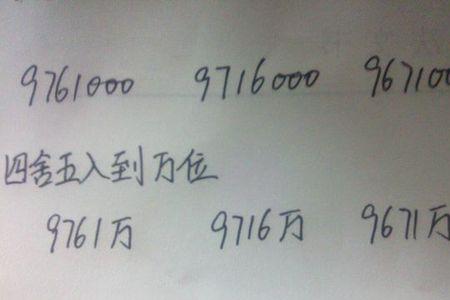 9761000 9716000 967100
四舍五入到万位
9761万 9716万 9671万